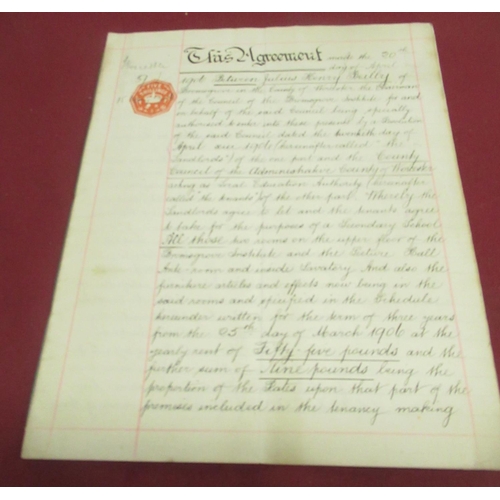 This Agreement made the 20th
day of April
1906 Between Julius Henry
Bromsgrove in the County of Worcester the Chairman
of the Council of the Bromsgrove Institute for and
on behalf of the said Council being specially
authorised to enter into these presents by a Resolution
of the said Council dated the twentieth day of
April one 1906 (hereinafter called "the
Landlords") of the one part and the County
Council of the Administrative County of Worcester
acting as Local Education Authority (hereinafter
called "the tenants") of the other part. Whereby the
Landlords agree to let and the tenants agree
to take for the purposes of a Secondary School
All those two rooms on the upper floor of the
Bromsgrove Institute and the Lecture Hall
Ante room and inside Lavatory And also the
furniture articles and effects now being in the
said rooms and specified in the Schedule
hereunder written for the term of three years
from the 25th day of March 1906 at the
yearly rent of Fifty five pounds and the
further sum of Nine pounds being the
proportion of the Rates upon that part of the
premises included in the tenancy making